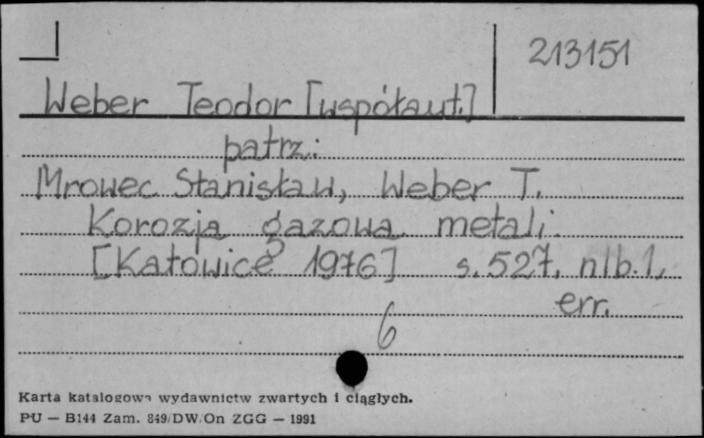 213151
Weber Teodor [współaut.]
patrz:
Mrowec Stanisław, Weber T.
Korozja gazowa metali.
[Katowice 1976] s. 527, nlb. 1,
err.
6
Karta katalogowa wydawnictw zwartych i ciągłych.
PU — B144 Zam. 849/DW/On ZGG — 1991